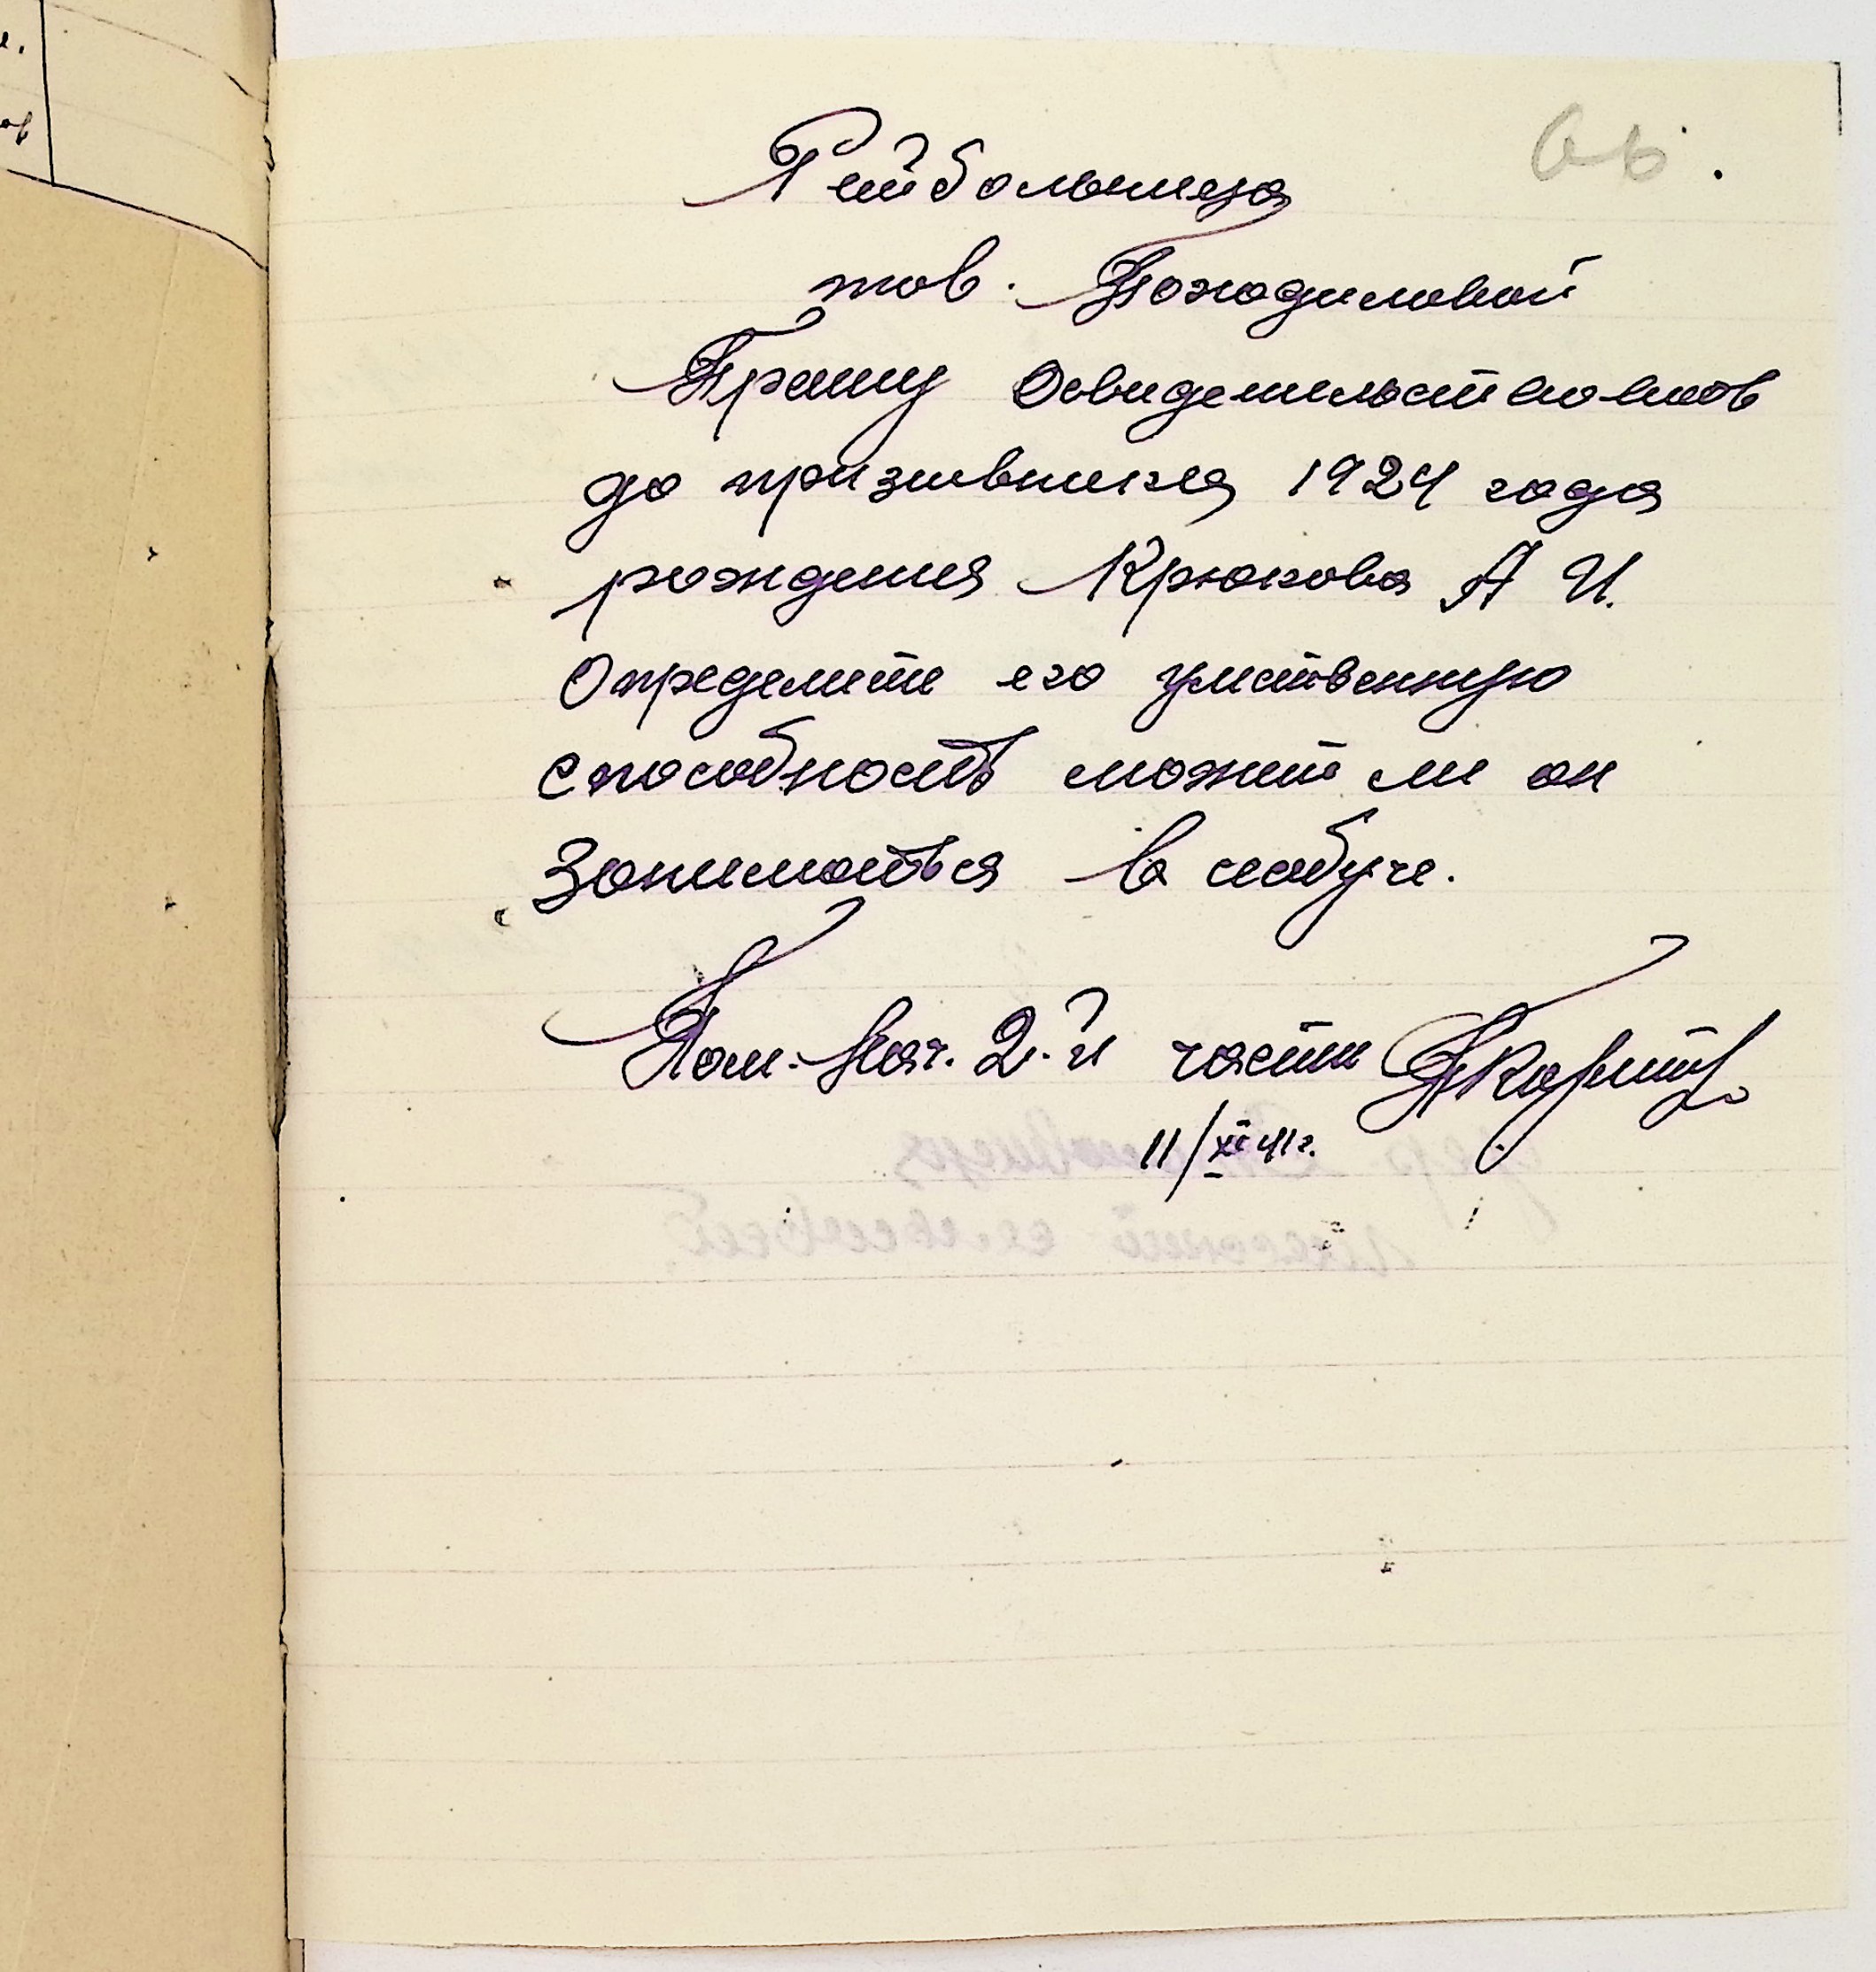 66.
Рейбольница
тов. Пожидиловой
Прошу Освидетельствоватв
до призывника 1924 года
рождения Крюкова А И.
Определите его умственную
способность может ли он
Заниматься в всобуче.
Пом. Нач. 2-й части
11/XII 41 г.